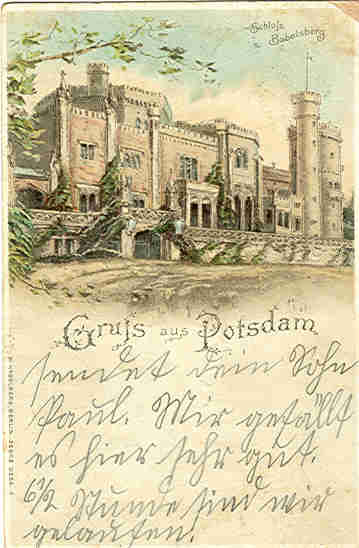 Schloß
Babelsberg
Gruß aus Potsdam
sendet dein Sohn
Paul. Mir gefällt
es hier sehr gut.
6½ Stunde sind wir
gelaufen.